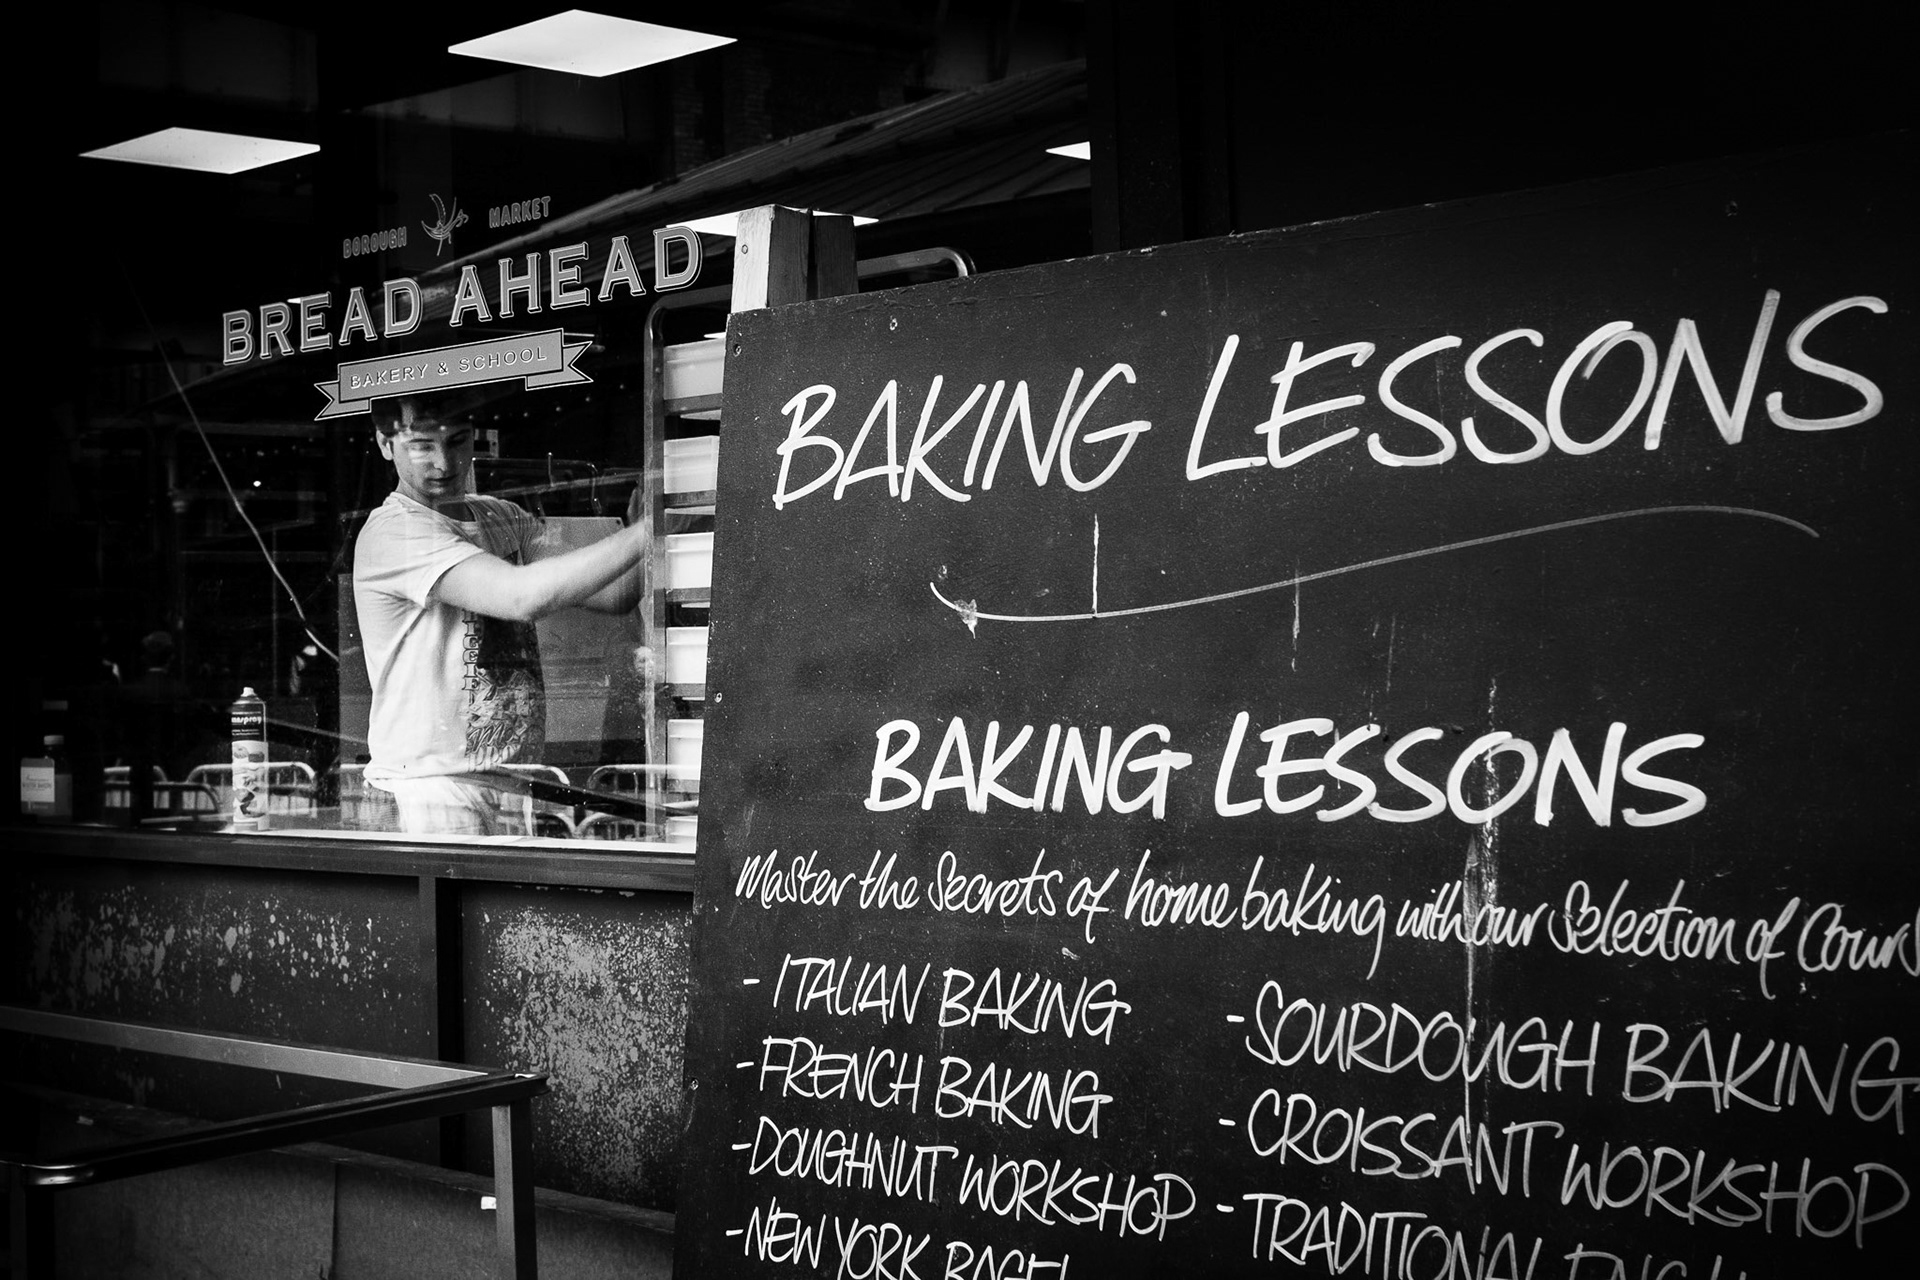 BOROUGH MARKET
BREAD AHEAD
BAKERY & SCHOOL
BAKING LESSONS
BAKING LESSONS
Master the Secrets of home baking with our Selection of Cours
- ITALIAN BAKING
- FRENCH BAKING
- DOUGHNUT WORKSHOP
- NEW YORK BAGEL
- SOURDOUGH BAKING
- CROISSANT WORKSHOP
- TRADITIONAL